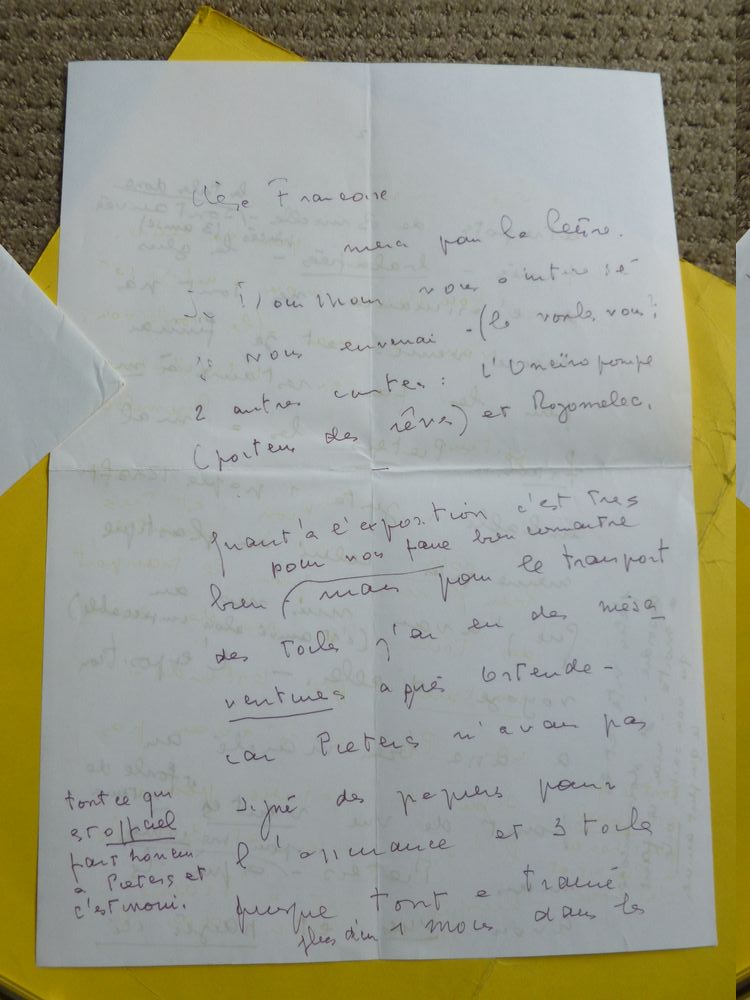 Chère Francoise
merci pour la lettre.
Si l'ouroboros vous a intéressé
je vous enverrai - (le voulez vous?)
2 autres contes: l'Oneiropompe
(porteur des rêves) et Rogomelec.
Quant à l'exposition c'est tres
pour vous faire bien connaitre
bien mais pour le transport
des toiles j'ai eu des mésa
ventures après Ostende -
car Pieters n'avait pas
signé des papiers pour
l'assurance et 3 toiles
puisque tout a trainé
plus d'un 1 mois dans les
tout ce qui
est officiel
fait horreur
a Pieters et
c'est moi.